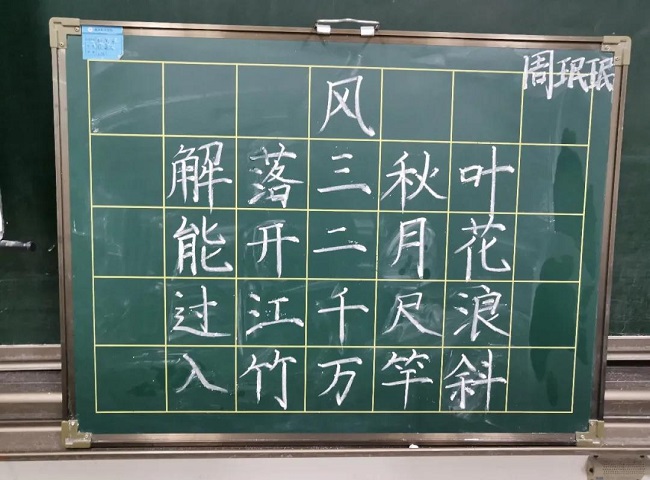 周珉珉
风
解落三秋叶
能开二月花
过江千尺浪
入竹万竿斜